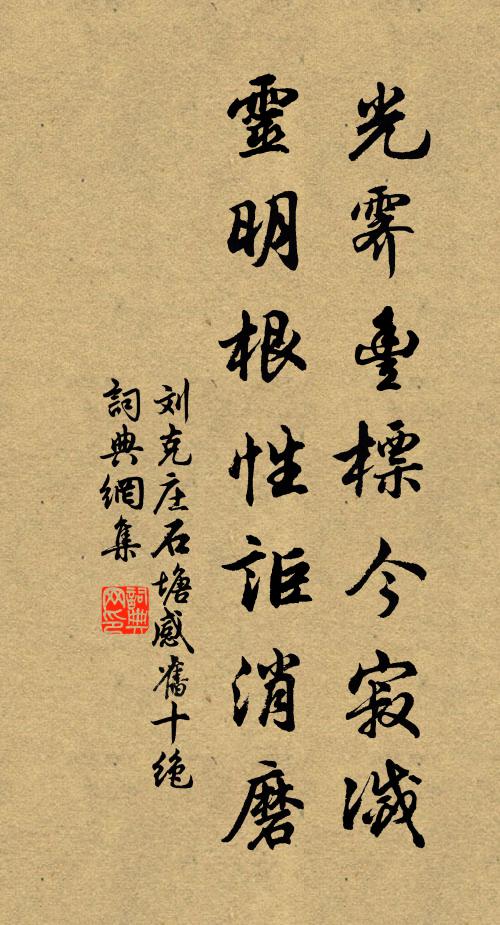 光霁豊標今寂滅
靈明根性詎消磨
刘克庄石塘感舊十绝
詞典網集
詞典网印